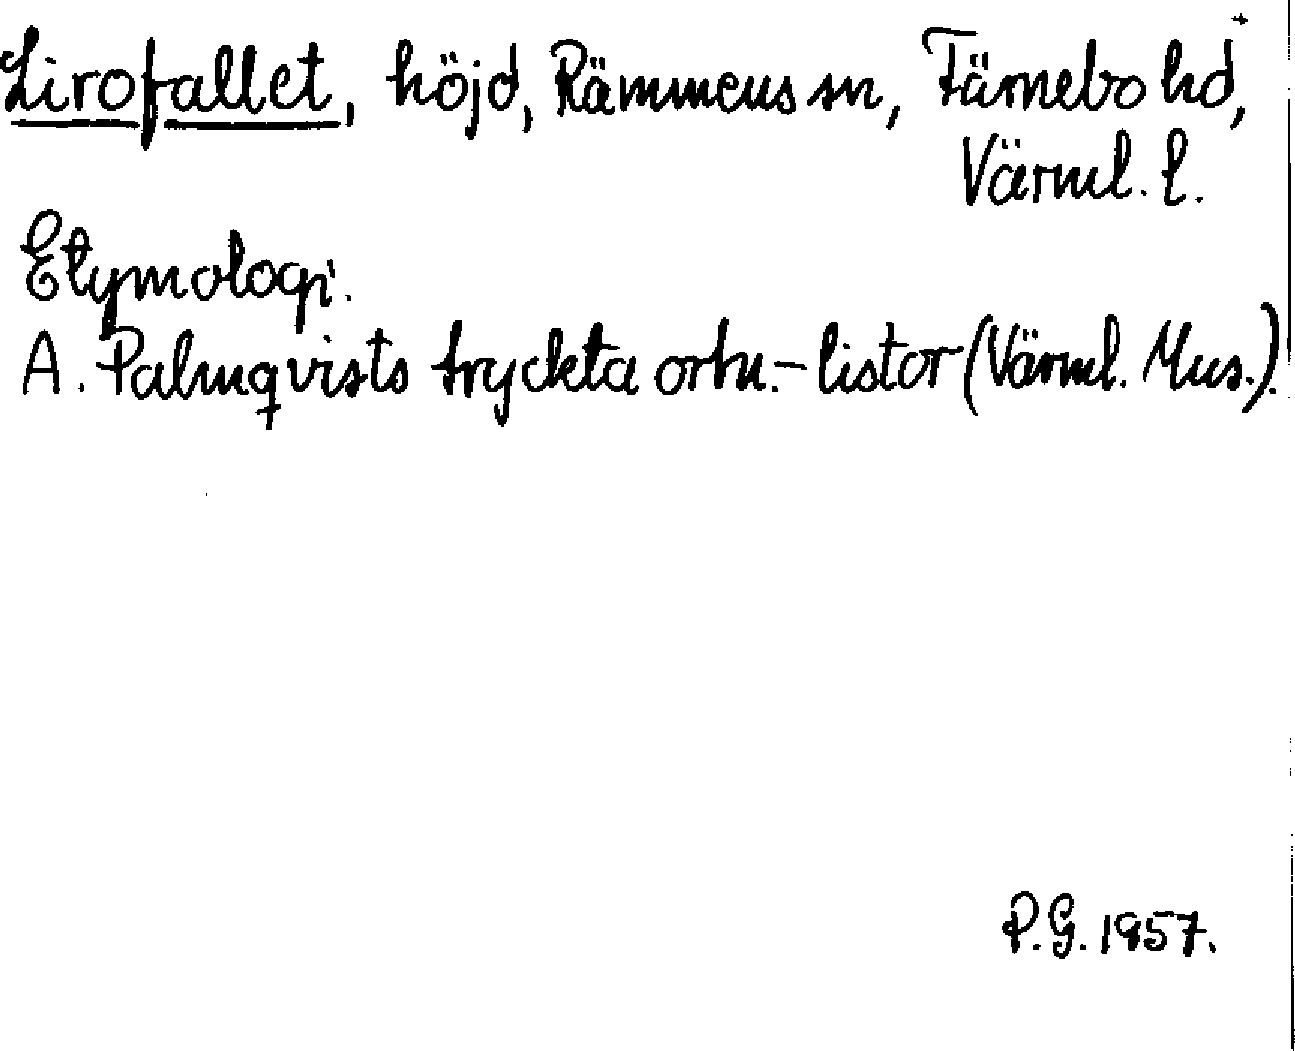 Lirofallet, höjd, Rämmens sn, Färnebo hd,
Värml. l.
Etymologi.
A. Palmqvists tryckta ortn.-listor (Värml. Mus.).
P.G. 1957.